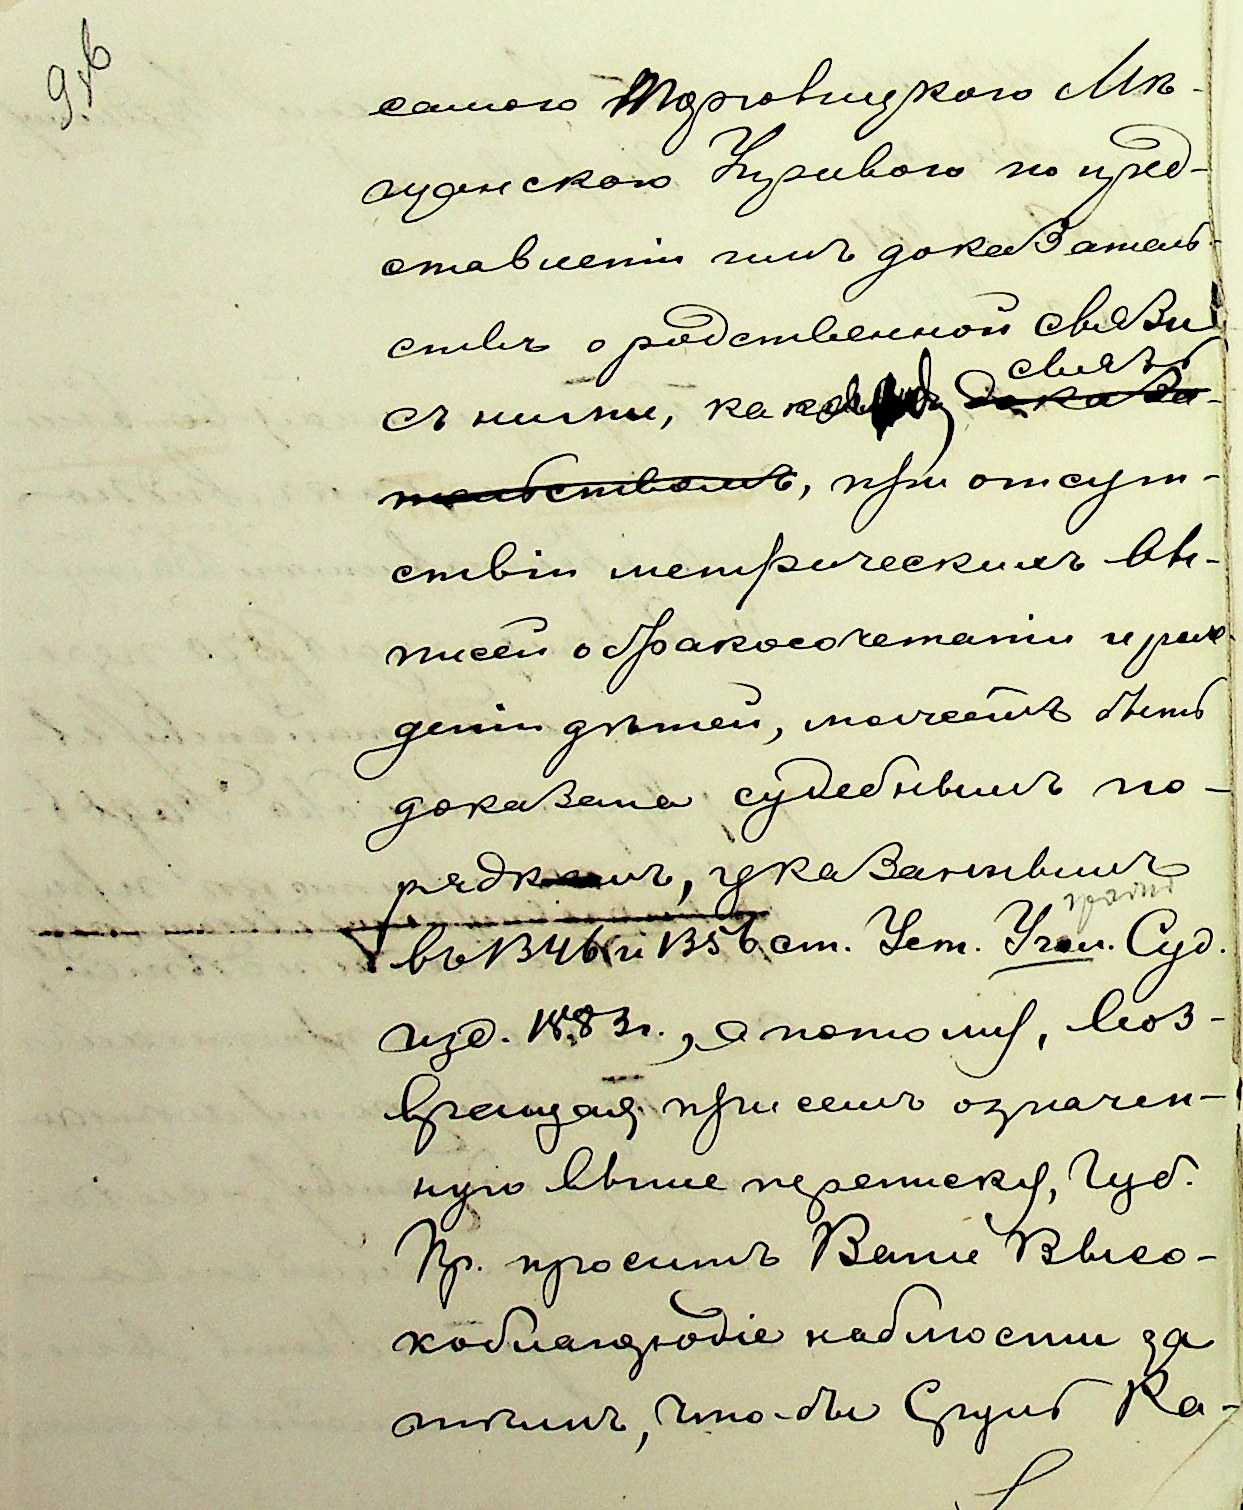 9 об
самого Торговицкого Мѣ-
щанскою Управою по пред-
ставленіи имъ доказатель-
ствъ о родственной связи
связь
съ ними, каковая доказа-
тельствомъ, при отсут-
ствіи метрическихъ вы-
писей о бракосочетаніи и рож-
деніи дѣтей, можетъ быть
доказана судебнымъ по-
рядкомъ, указаннымъ
гражд
въ 1346 и 1356 ст. Уст. Угол. Суд.
изд. 1883 г., а потому, воз-
вращая при семъ означен-
ную выше переписку, Губ.
Пр. проситъ Ваше Высо-
коблагородіе наблюсти за
тѣмъ, что-бы Ка-